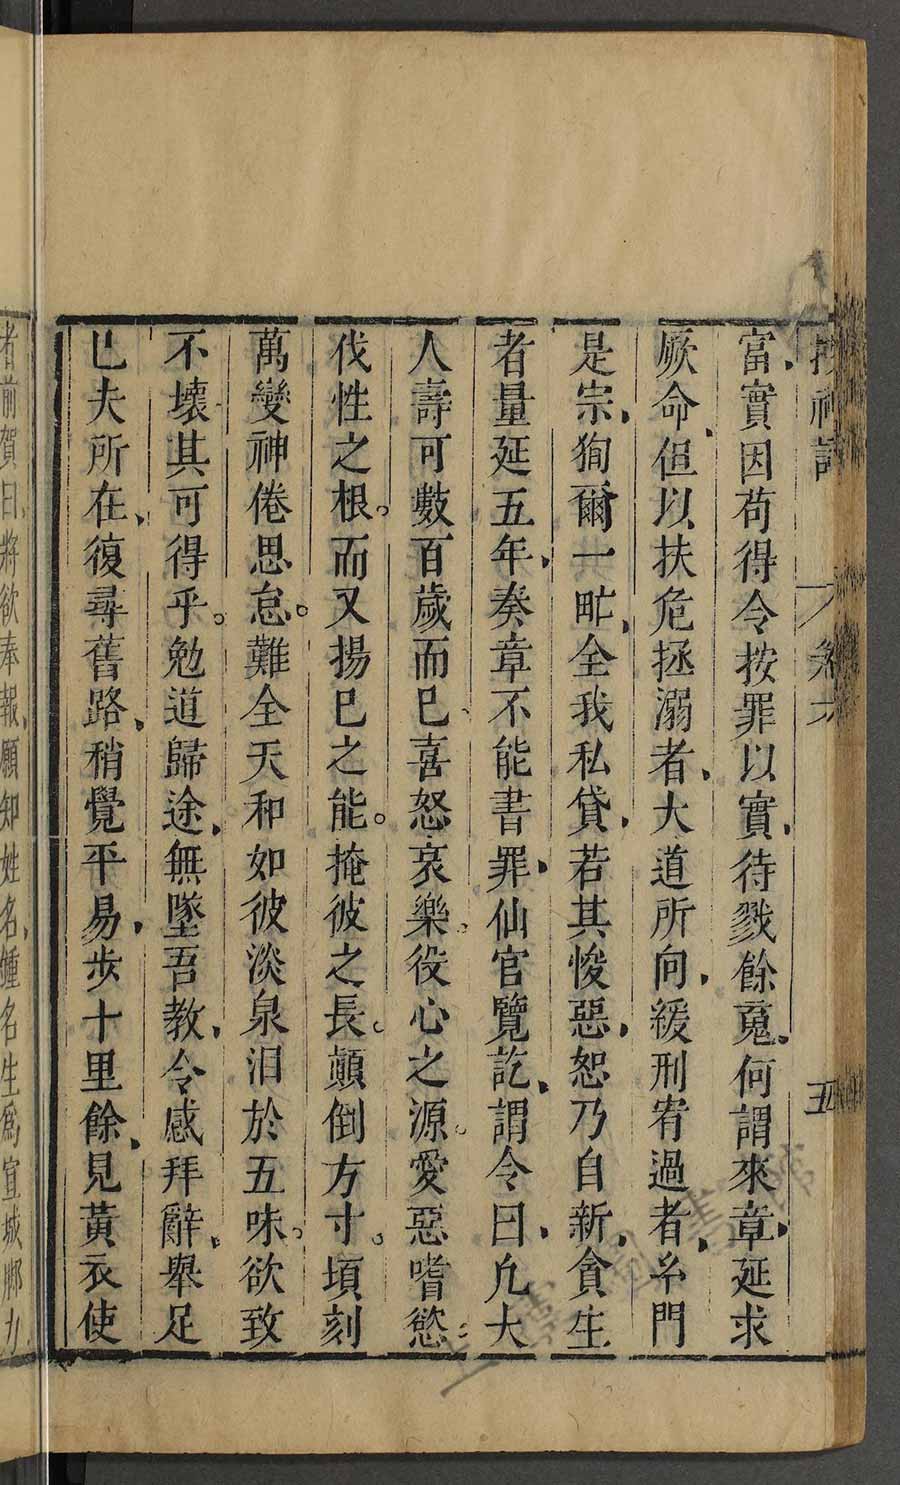 搜神記 卷六 五
富實因苟得令按罪以實待戮餘䰟何謂來章延求
厥命但以扶危拯溺者大道所向緩刑宥過者玄門
是宗狥爾一甿全我私貸若其悛惡恕乃自新貪生
者量延五年奏章不能書罪仙官覽訖謂令曰凢大
人壽可數百歲而已喜怒哀樂役心之源愛惡嗜慾
伐性之根而又揚已之能掩彼之長顛倒方寸頃刻
萬變神倦思怠難全天和如彼淡泉汨於五味欲致
不壞其可得乎勉道歸途無墜吾教令感拜辭舉足
已失所在復尋舊路稍覺平易步十里餘見黃衣使
者前賀曰將欲奉報願知姓名鍾名生爲宜城脚力